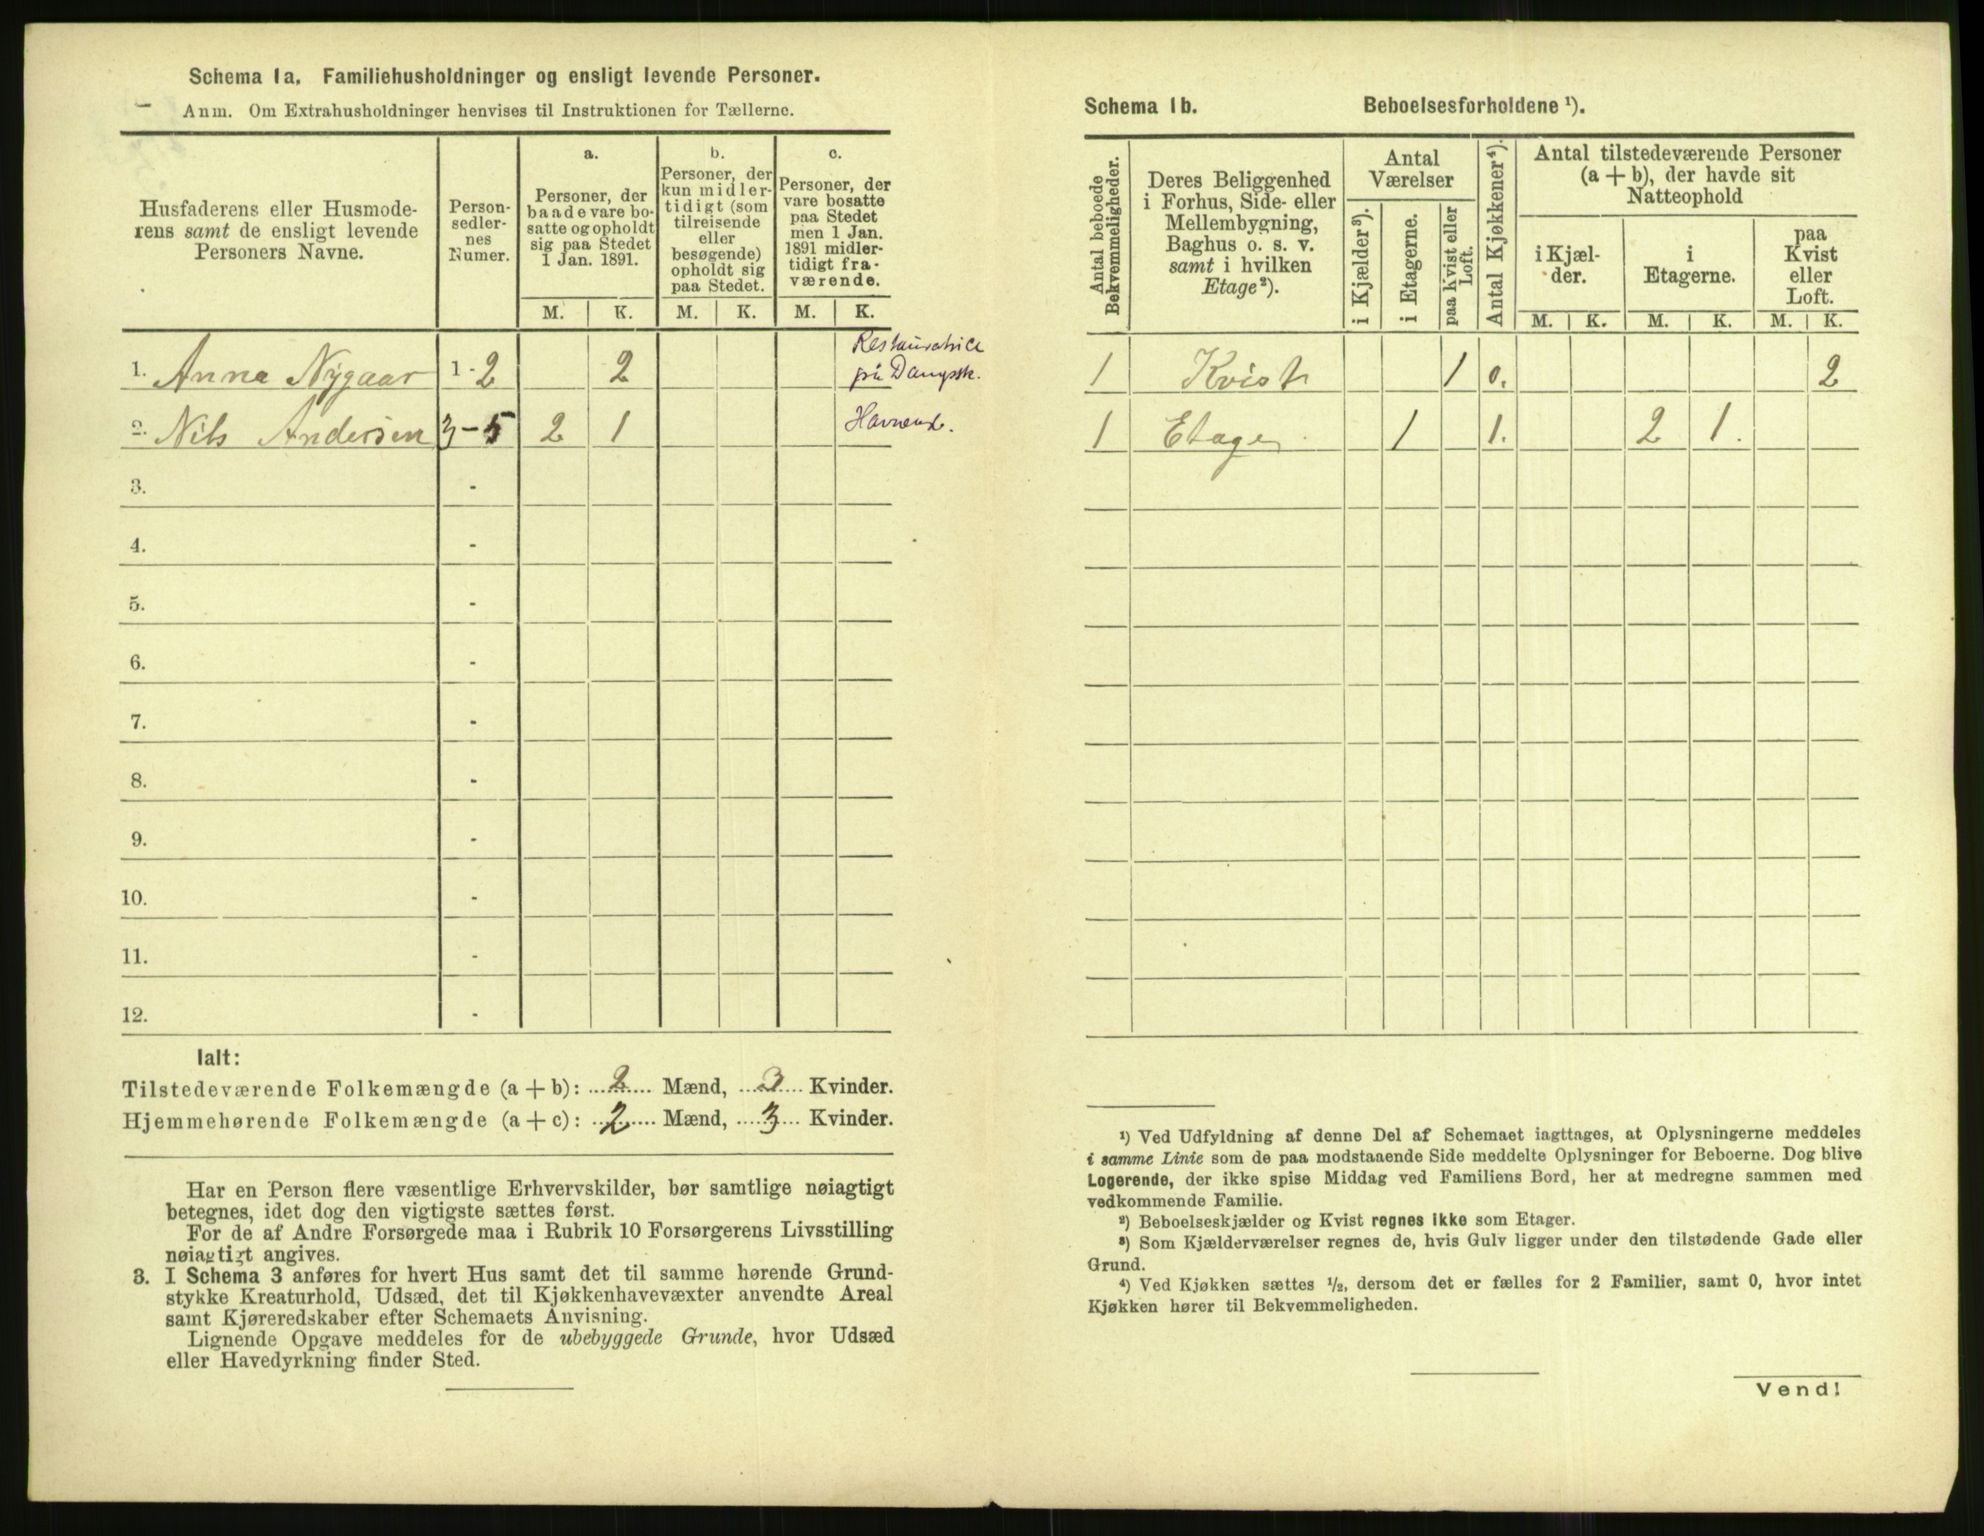 Schema 1a. Familiehusholdninger og ensligt levende Personer.
Anm. Om Extrahusholdninger henvises til Instruktionen for Tællerne.
Husfaderens eller Husmode-
rens samt de ensligt levende
Personers Navne.
Person-
sedler-
nes
Numer.
a.
Personer, der
baade vare bo-
satte og opholdt
sig paa Stedet
1 Jan. 1891.
b.
Personer, der
kun midler-
tidigt (som
tilreisende
eller
besøgende)
opholdt sig
paa Stedet.
c.
Personer, der
vare bosatte
paa Stedet
men 1 Jan.
1891 midler-
tidigt fra-
værende.
M. K. M. K. M. K.
1. Anna Nygaar 1-2 2 Restauratrice
på Dampsk.
2. Nils Andersen 3-5 2 1
3. -
4. -
5. -
6. -
7. -
8. -
9. -
10. -
11. -
12. -
Ialt:
Tilstedeværende Folkemængde (a + b): 2 Mænd, 3 Kvinder.
Hjemmehørende Folkemængde (a + c): 2 Mænd, 3 Kvinder.
Har en Person flere væsentlige Erhvervskilder, bør samtlige nøiagtigt
betegnes, idet dog den vigtigste sættes først.
For de af Andre Forsørgede maa i Rubrik 10 Forsørgerens Livsstilling
nøiagtigt angives.
3. I Schema 3 anføres for hvert Hus samt det til samme hørende Grund-
stykke Kreaturhold, Udsæd, det til Kjøkkenhavevæxter anvendte Areal
samt Kjøreredskaber efter Schemaets Anvisning.
Lignende Opgave meddeles for de ubebyggede Grunde, hvor Udsæd
eller Havedyrkning finder Sted.
Schema 1b. Beboelsesforholdene ¹).
Antal beboede
Bekvemmeligheder.
Deres Beliggenhed
i Forhus, Side- eller
Mellembygning,
Baghus o. s. v.
samt i hvilken
Etage ²).
Antal
Værelser
i Kjælder ³).
i Etagerne.
paa Kvist eller
Loft.
Antal Kjøkkener ⁴).
Antal tilstedeværende Personer
(a + b), der havde sit
Natteophold
i Kjæl-
der.
i
Etagerne.
paa
Kvist
eller
Loft.
M. K. M. K. M. K.
1 Kvist 1 0. 2
1 Etage 1 1. 2 1.
¹) Ved Udfyldning af denne Del af Schemaet iagttages, at Oplysningerne meddeles
i samme Linie som de paa modstaaende Side meddelte Oplysninger for Beboerne. Dog blive
Logerende, der ikke spise Middag ved Familiens Bord, her at medregne sammen med
vedkommende Familie.
²) Beboelseskjælder og Kvist regnes ikke som Etager.
³) Som Kjælderværelser regnes de, hvis Gulv ligger under den tilstødende Gade eller
Grund.
⁴) Ved Kjøkken sættes ½, dersom det er fælles for 2 Familier, samt 0, hvor intet
Kjøkken hører til Bekvemmeligheden.
Vend!